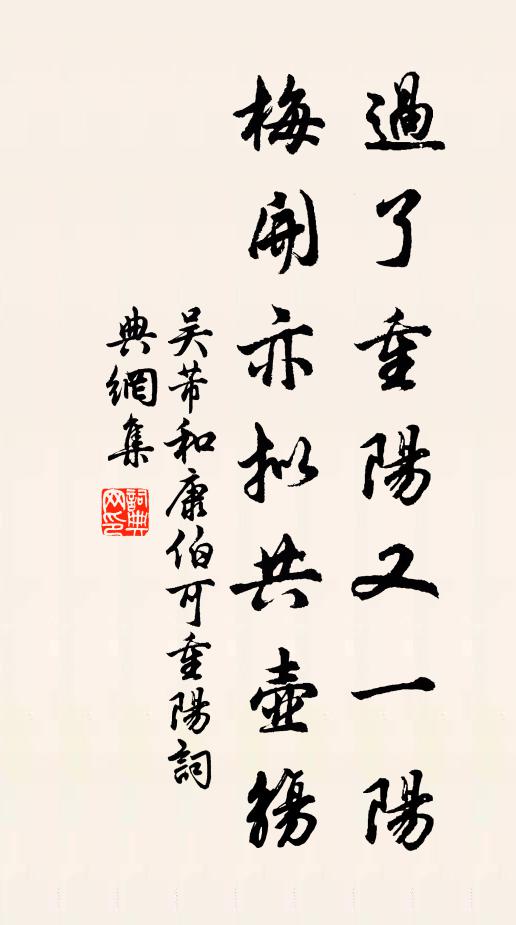 過了重陽又一陽
梅開亦拟共壺觴
吴芾和康伯可重陽詞
典網集
詞典网印